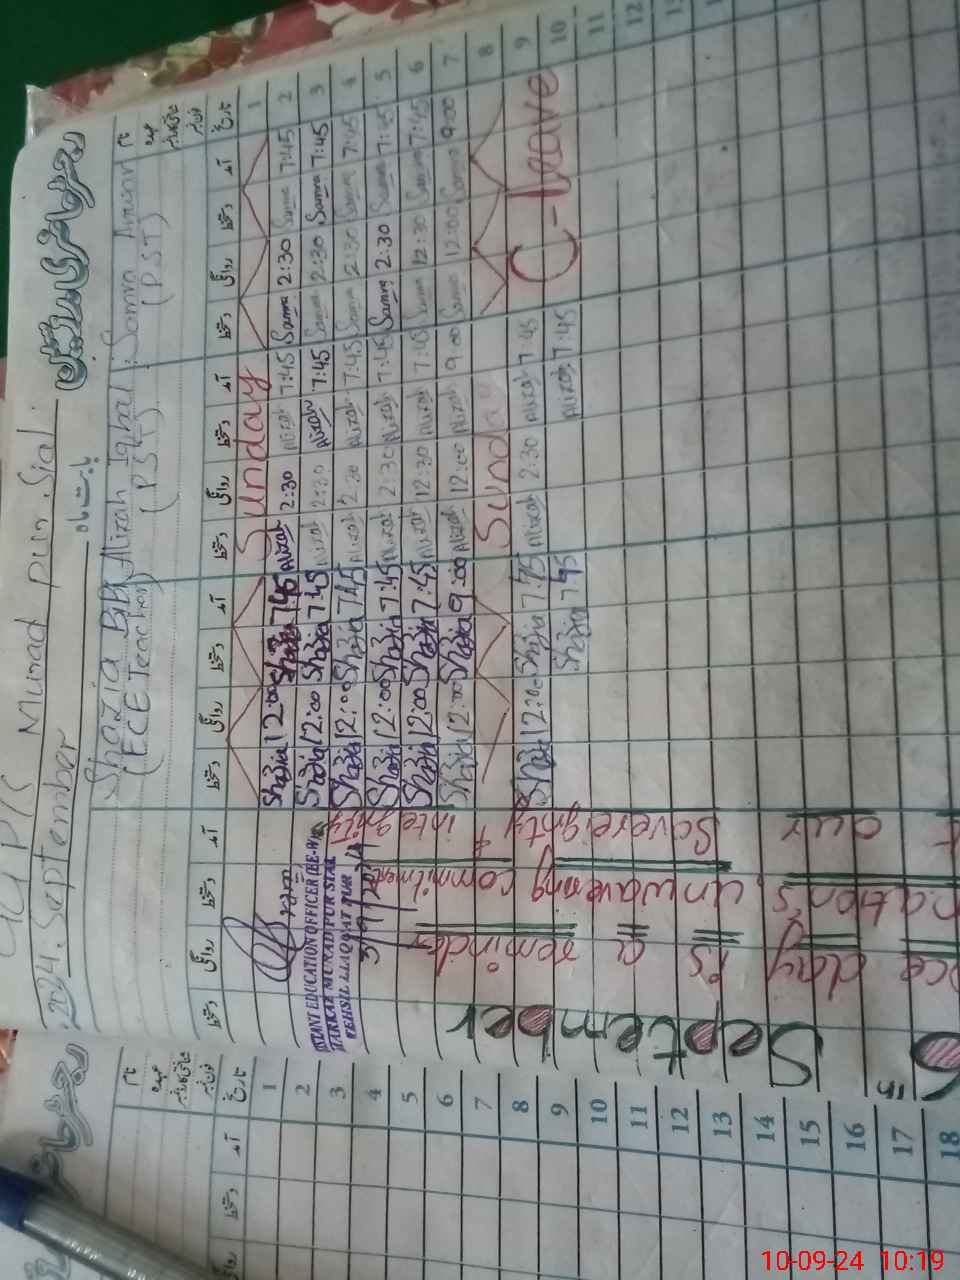 رجسٹر حاضری مدرسین
GGPS Murad pur Sial
2024. September بابت ماہ
نام Samra Anwar Alizah Iqbal Shazia BiBi
عہدہ (PST) (PST) (ECE Teacher)
تاریخ آمد دستخط روانگی دستخط آمد دستخط روانگی دستخط آمد دستخط روانگی دستخط آمد دستخط روانگی دستخط
1 Sunday
2 7:45 Samra 2:30 Samra 7:45 Alizah 2:30 Alizah 7:45 Shazia 12:00 Shazia
3 7:45 Samra 2:30 Samra 7:45 Alizah 2:30 Alizah 7:45 Shazia 12:00 Shazia
4 7:45 Samra 2:30 Samra 7:45 Alizah 2:30 Alizah 7:45 Shazia 12:00 Shazia
5 7:45 Samra 2:30 Samra 7:45 Alizah 2:30 Alizah 7:45 Shazia 12:00 Shazia
6 7:45 Samra 12:30 Samra 7:45 Alizah 12:30 Alizah 7:45 Shazia 12:00 Shazia
7 9:00 Samra 12:00 Samra 9:00 Alizah 12:00 Alizah 9:00 Shazia 12:00 Shazia
8 Sund
9 C-leave 7:45 Alizah 2:30 Alizah 7:45 Shazia 12:00 Shazia
10 7:45 Alizah 7:45 Shazia
11
12
13
ISTANT EDUCATION OFFICER (EE-W)
MARKAZ MURAD PUR SIAL
TEHSIL LIAQAT PUR
3/9/24
September
6th
nce day is a reminder
nation's unwavering commitment
f our Sovereignty & integrity
نام
عہدہ
تاریخ آمد دستخط روانگی
1
2
3
4
5
6
7
8
9
10
11
12
13
14
15
16
17
18
10-09-24 10:19